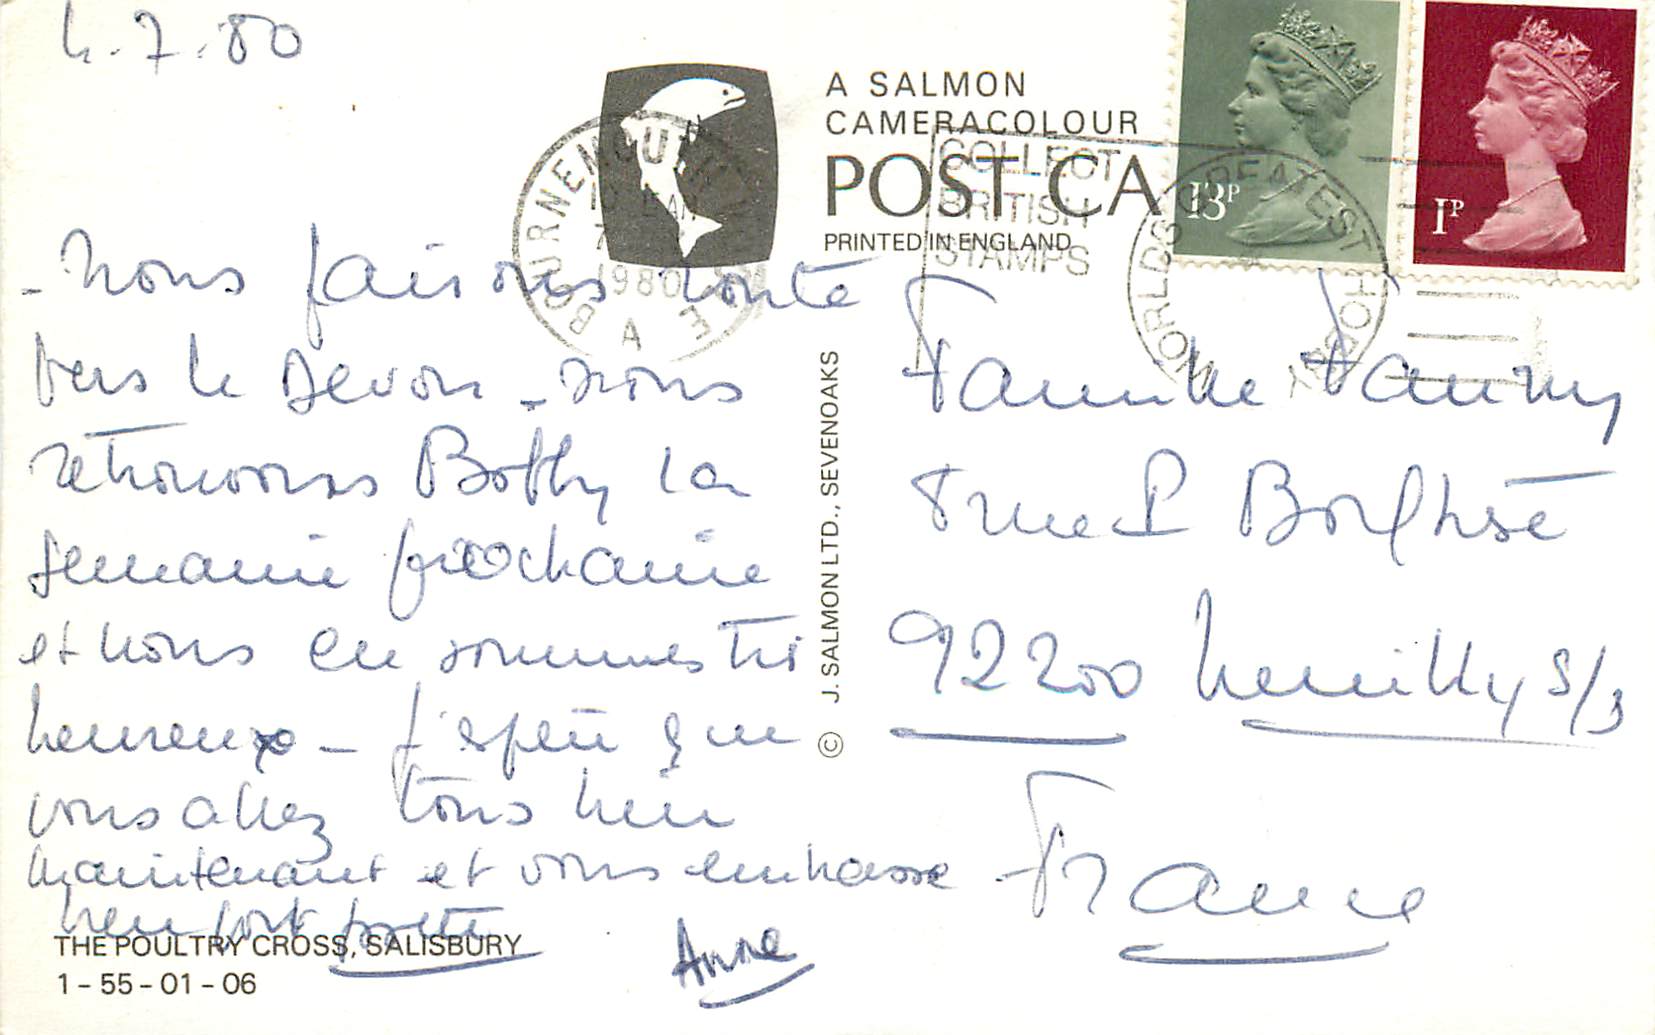 4.7.80
A SALMON
CAMERACOLOUR
POST CA
PRINTED IN ENGLAND
COLLECT
BRITISH
STAMPS
WORLDS GREATEST HOBBY
BOURNEMOUTH POOLE
1980
A
13P
1P
- Nous faisons route
vers le Devon - nous
retrouvons Bobby la
semaine prochaine
et nous en sommes très
heureux - J'espère que
vous allez tous bien
maintenant et vous embrasse
bien fort
Anne
Famille
92200 Neuilly S/S
France
© J. SALMON LTD., SEVENOAKS
THE POULTRY CROSS, SALISBURY
1-55-01-06